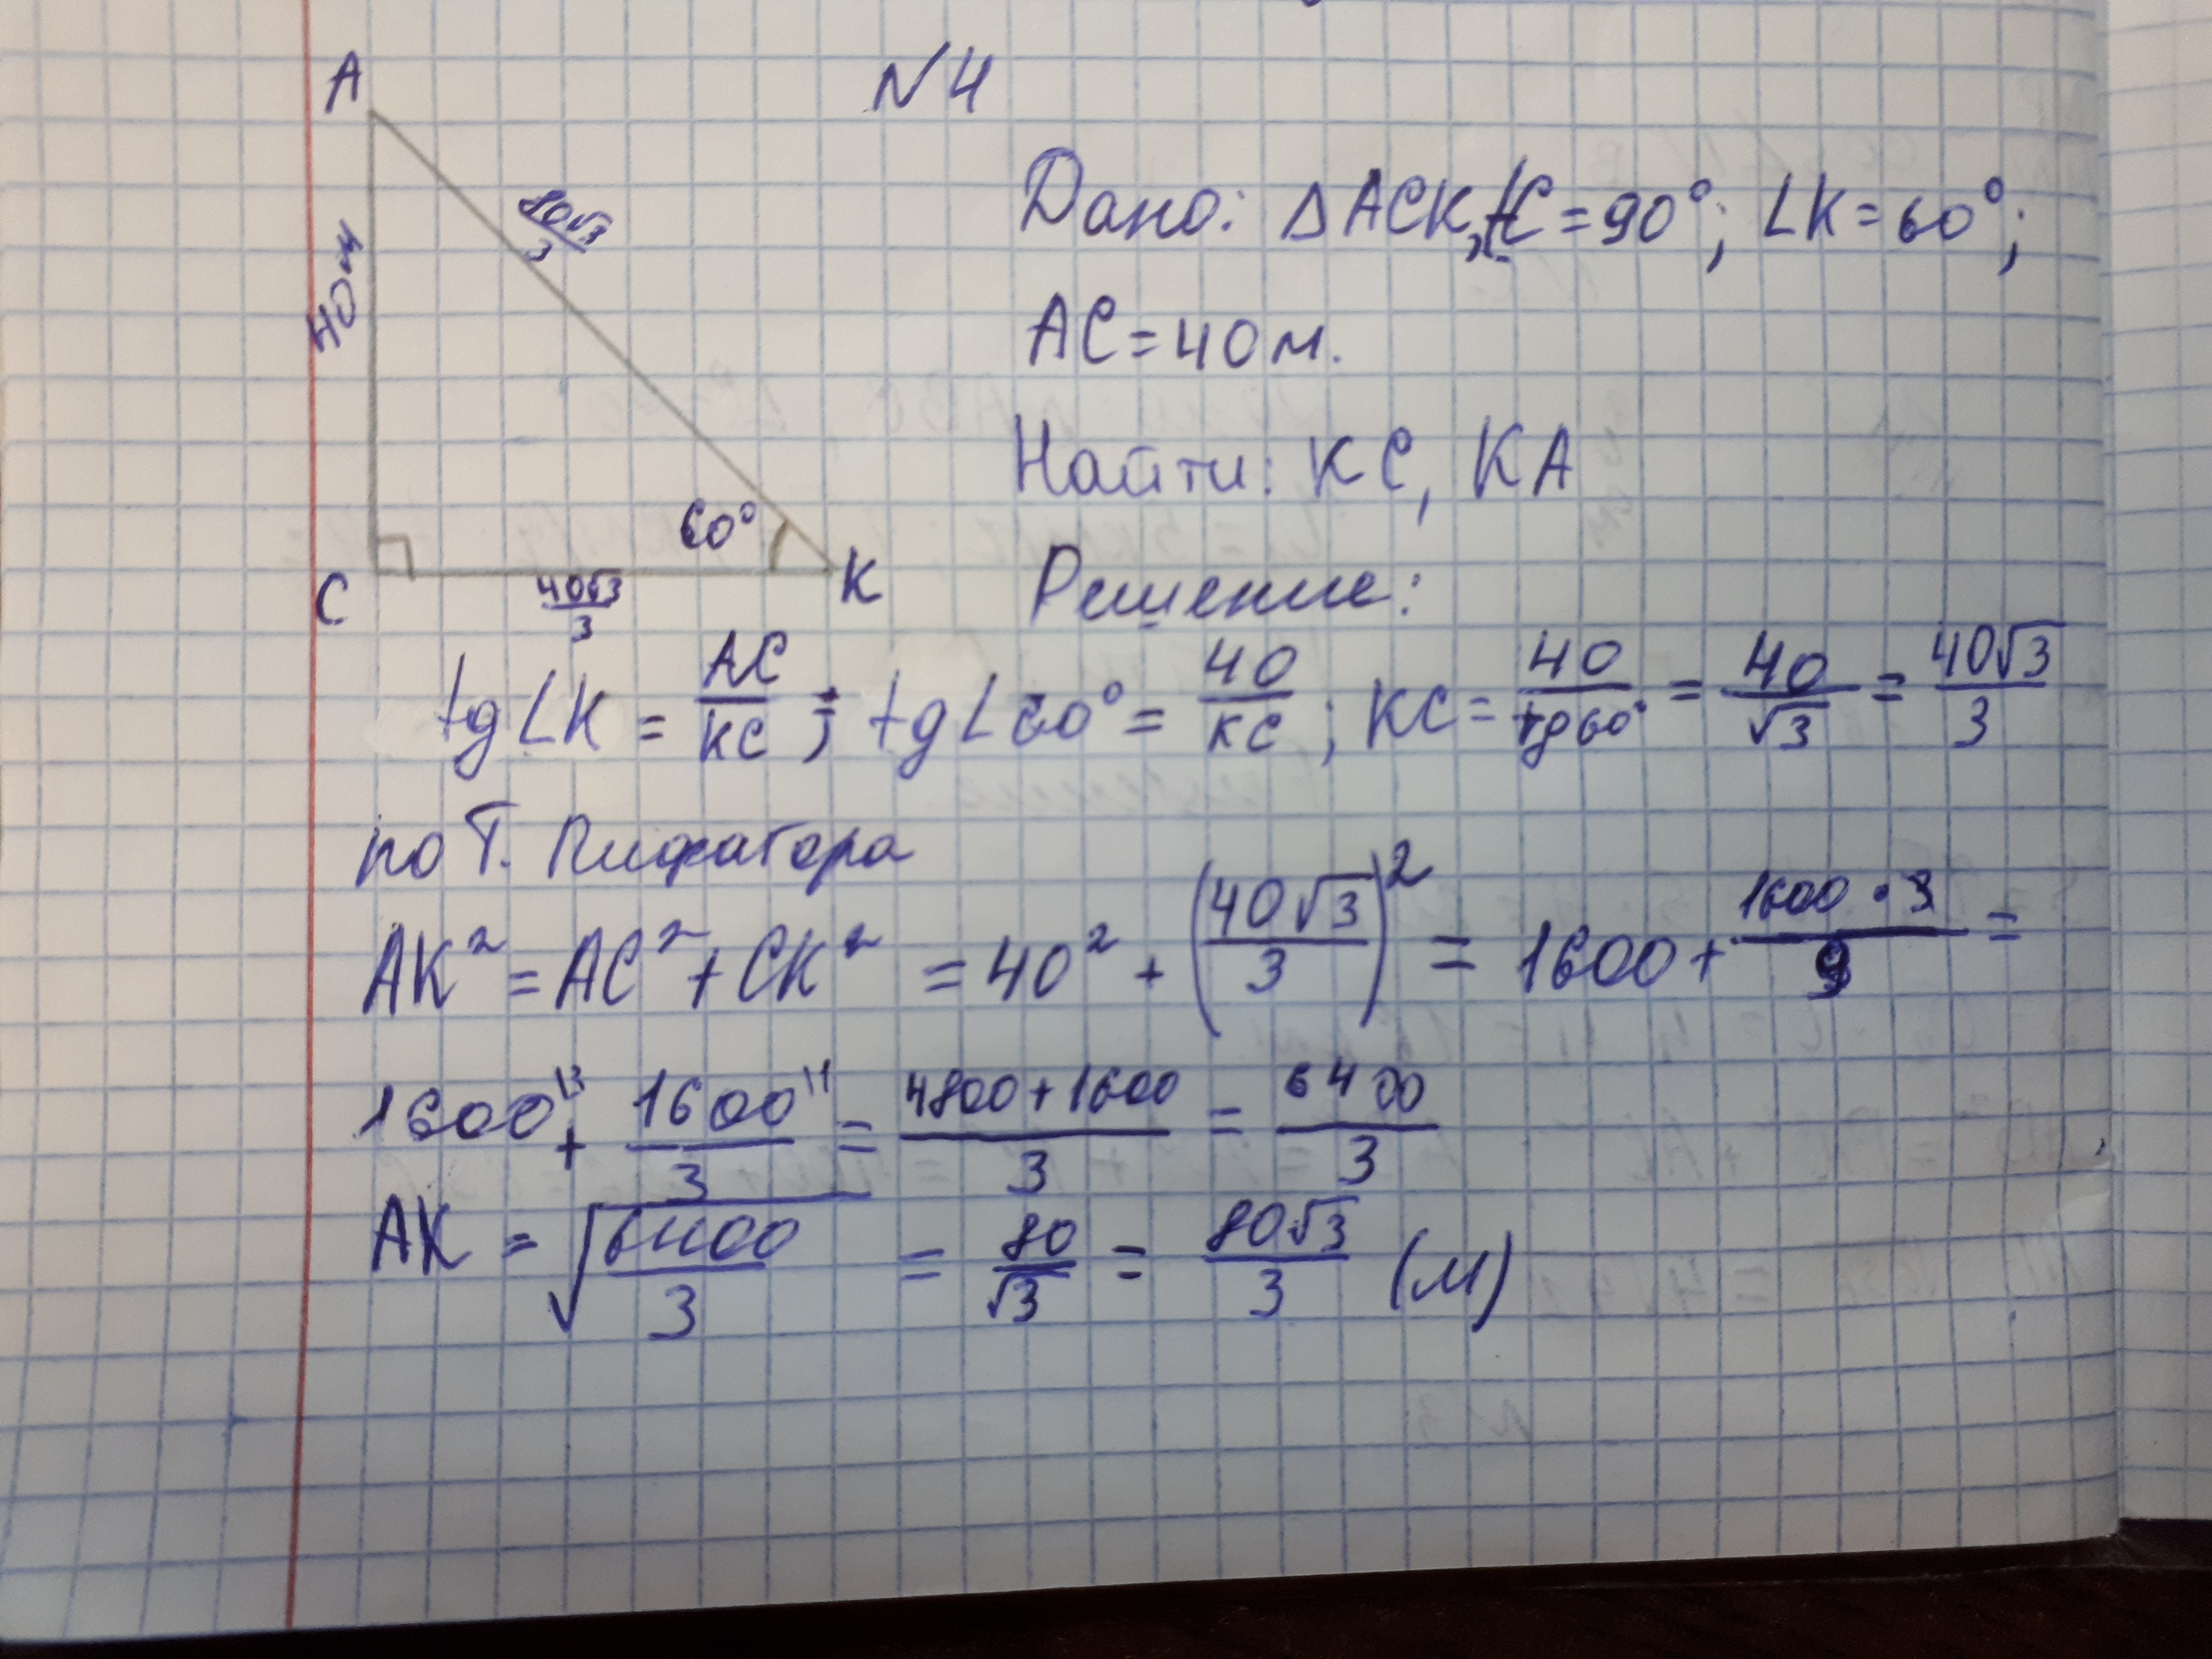 N4
A
80√3/3
40м
60°
C
K
40√3/3
Дано: ΔACK, ∠C = 90°; ∠K = 60°;
AC = 40 м.
Найти: KC, KA
Решение:
tg∠K = AC/KC; tg∠60° = 40/KC; KC = 40/tg60° = 40/√3 = 40√3/3
по Т. Пифагора
AK² = AC² + CK² = 40² + (40√3/3)² = 1600 + 1600·3/9 =
1600\3 + 1600\1/3 = 4800+1600/3 = 6400/3
AK = √6400/3 = 80/√3 = 80√3/3 (м)